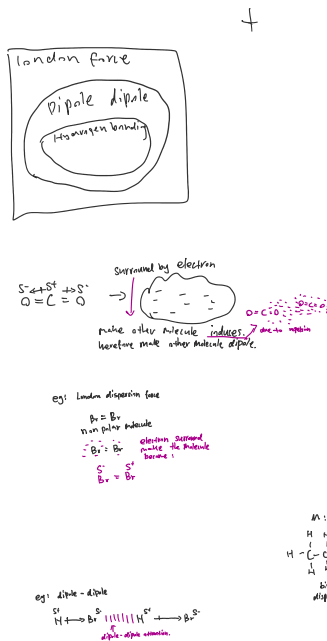 london force
Dipole dipole
Hydrogen bonding
surround by electron
S- S+ S-
O=C=O
O=C=O
O=C=O
make other molecule induces.
therefore make other molecule dipole.
due to repulsion
eg: London dispersion force
Br=Br
non polar molecule
Br=Br
electron surround
make the molecule
become :
S- S+
Br=Br
H
H-C-C
H
eg: dipole-dipole
S+ S- S+ S-
H Br H Br
dipole-dipole attraction.